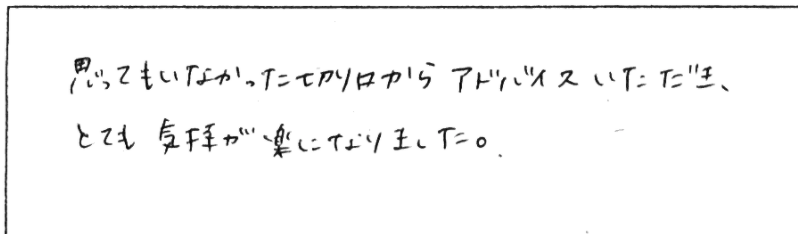 思ってもいなかった切り口からアドバイスいただき、
とても気持が楽になりました。